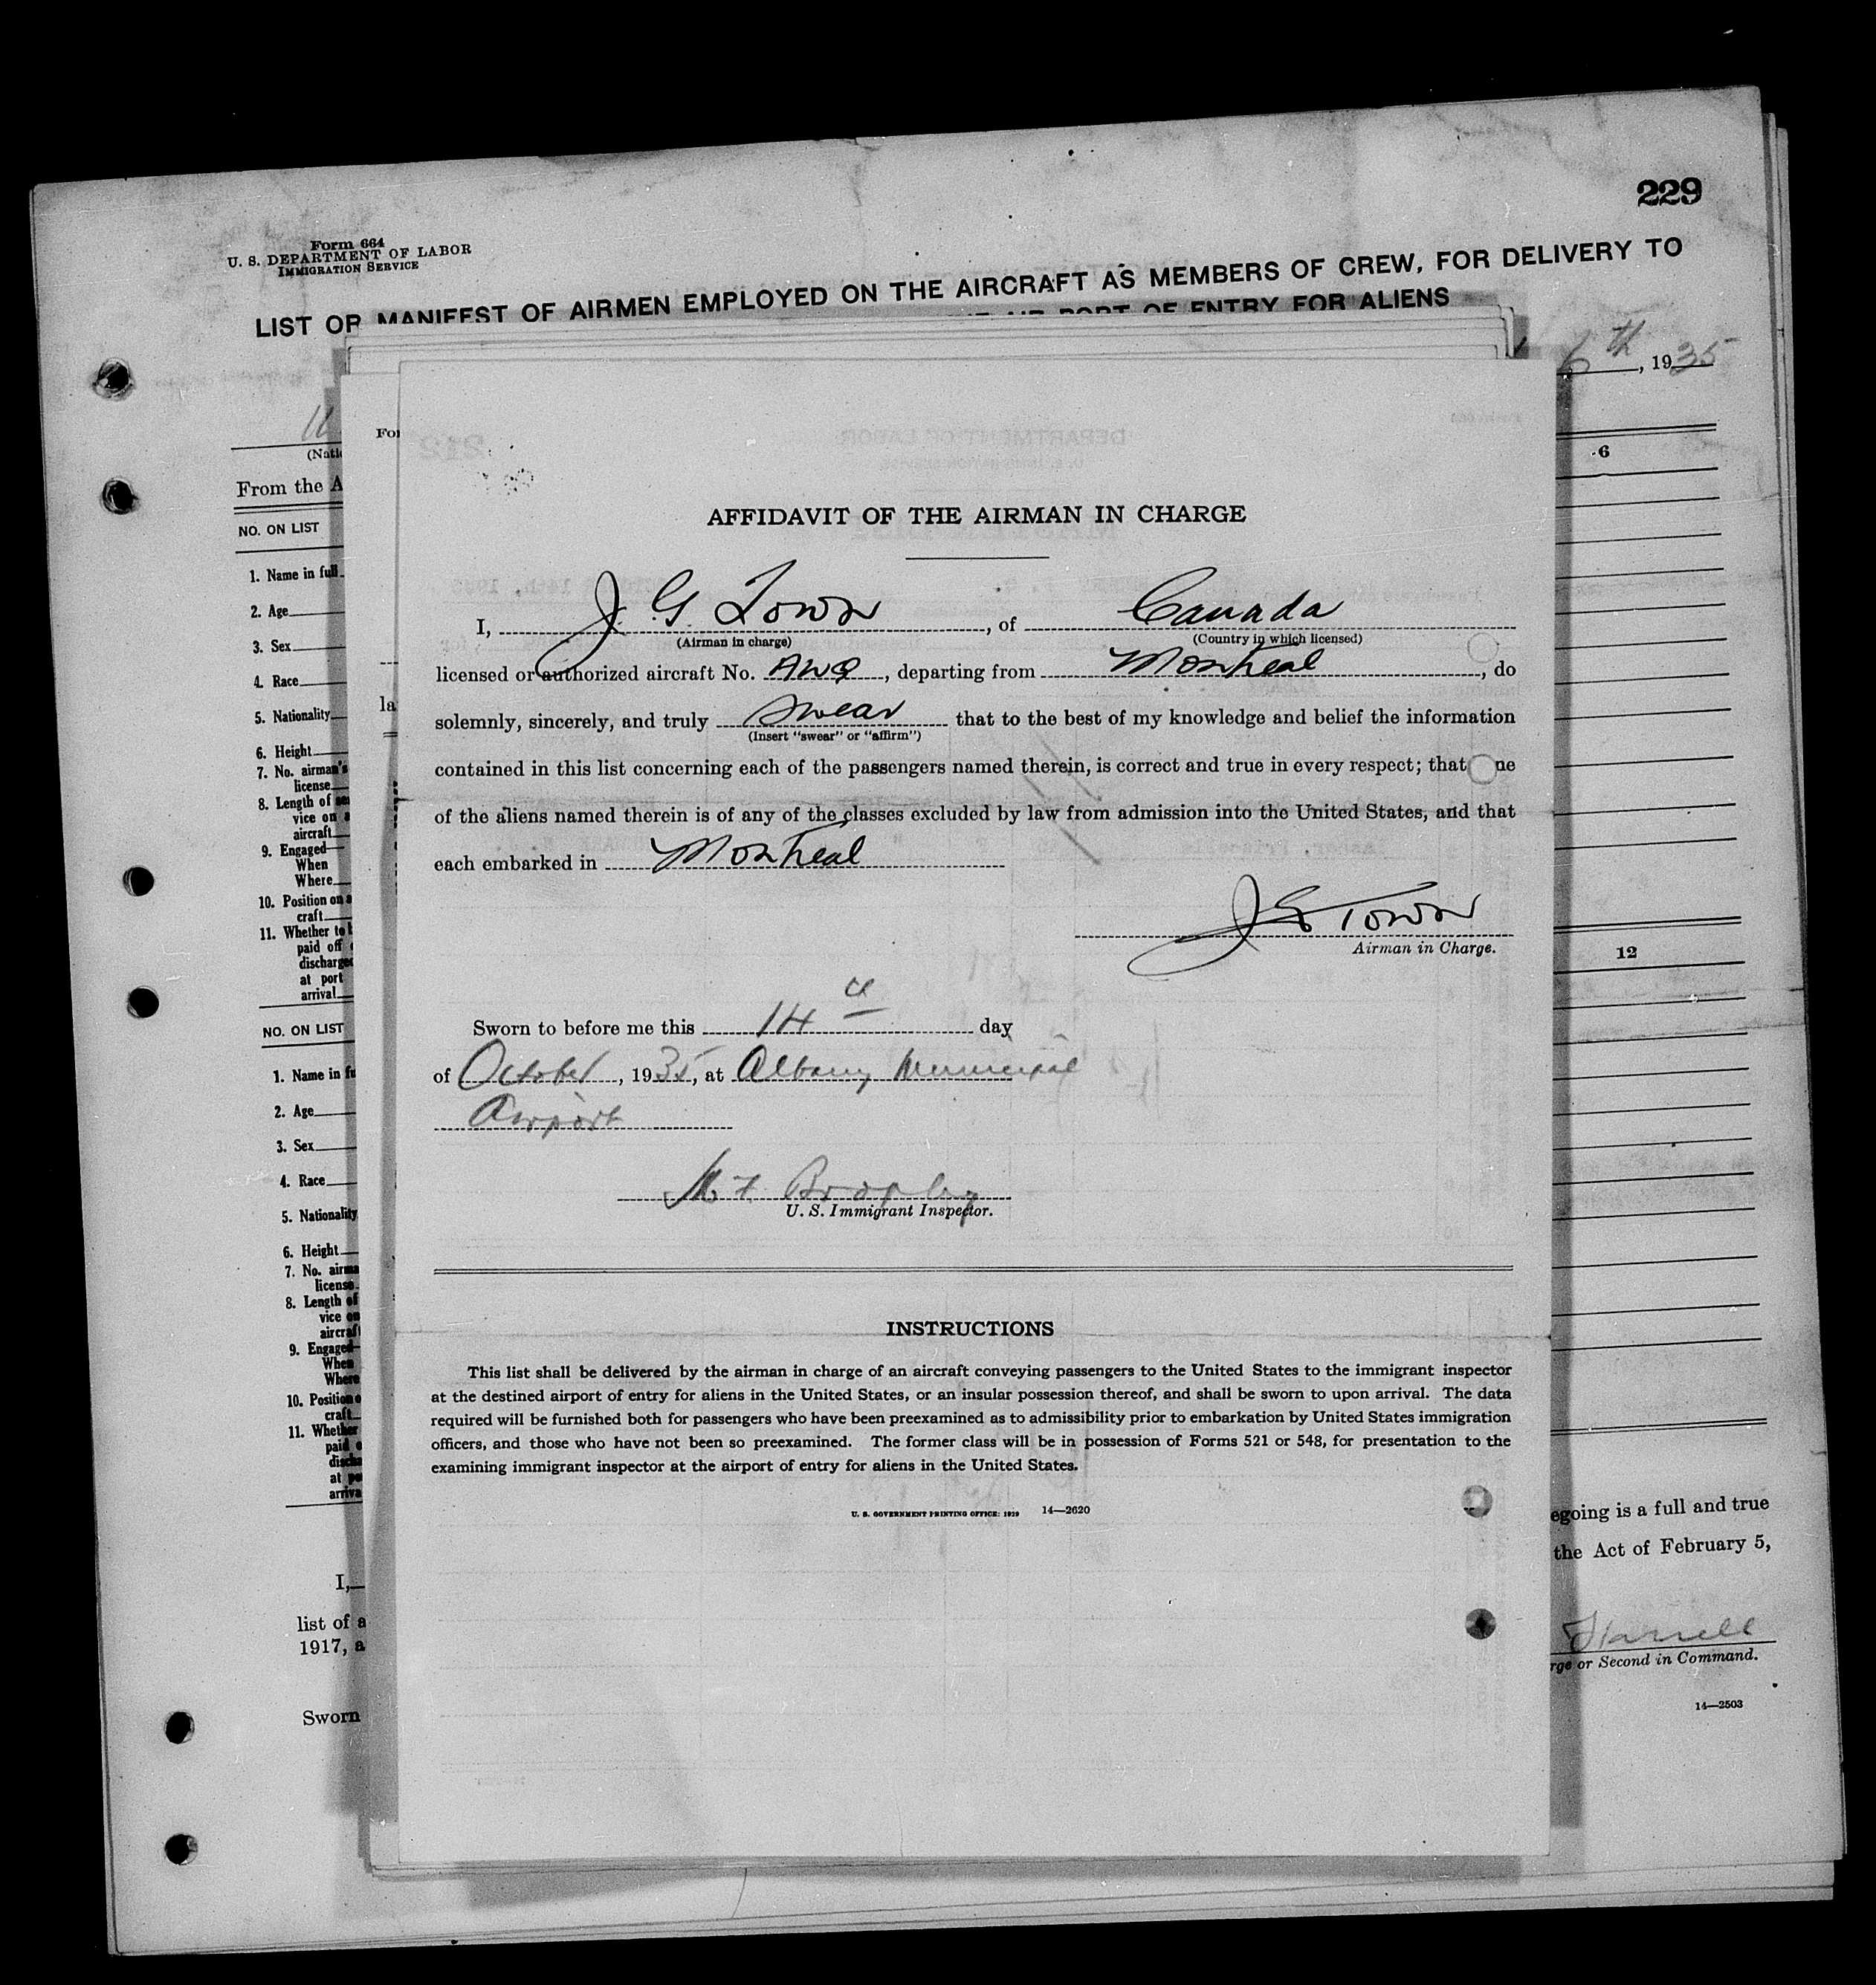 229
Form 664
U. S. DEPARTMENT OF LABOR
IMMIGRATION SERVICE
LIST OR MANIFEST OF AIRMEN EMPLOYED ON THE AIRCRAFT AS MEMBERS OF CREW, FOR DELIVERY TO
AIR PORT OF ENTRY FOR ALIENS
6th, 1935
(Nati
From the A
NO. ON LIST
6
1. Name in full
2. Age
3. Sex
4. Race
5. Nationality
6. Height
7. No. airman's
license
8. Length of se
vice on a
aircraft
9. Engaged
When
Where
10. Position on a
craft
11. Whether to b
paid off
discharge
at port
arrival
NO. ON LIST
12
1. Name in fu
2. Age
3. Sex
4. Race
5. Nationality
6. Height
7. No. airma
license
8. Length of
vice on
aircraf
9. Engaged
When
Where
10. Position o
craft
11. Whether
paid o
discha
at po
arriva
I,
list of a
1917, a
Sworn
For
la
AFFIDAVIT OF THE AIRMAN IN CHARGE
I, J. G. Town, of Canada
(Airman in charge) (Country in which licensed)
licensed or authorized aircraft No. AWQ, departing from Montreal, do
solemnly, sincerely, and truly swear that to the best of my knowledge and belief the information
(Insert "swear" or "affirm")
contained in this list concerning each of the passengers named therein, is correct and true in every respect; that ne
of the aliens named therein is of any of the classes excluded by law from admission into the United States, and that
each embarked in Montreal
J G Town
Airman in Charge.
Sworn to before me this 14 day
of October, 1935, at Albany Municipal
Airport
M F Brophy
U. S. Immigrant Inspector.
INSTRUCTIONS
This list shall be delivered by the airman in charge of an aircraft conveying passengers to the United States to the immigrant inspector
at the destined airport of entry for aliens in the United States, or an insular possession thereof, and shall be sworn to upon arrival. The data
required will be furnished both for passengers who have been preexamined as to admissibility prior to embarkation by United States immigration
officers, and those who have not been so preexamined. The former class will be in possession of Forms 521 or 548, for presentation to the
examining immigrant inspector at the airport of entry for aliens in the United States.
U. S. GOVERNMENT PRINTING OFFICE: 1929 14—2620
egoing is a full and true
the Act of February 5,
rge or Second in Command.
14—2503